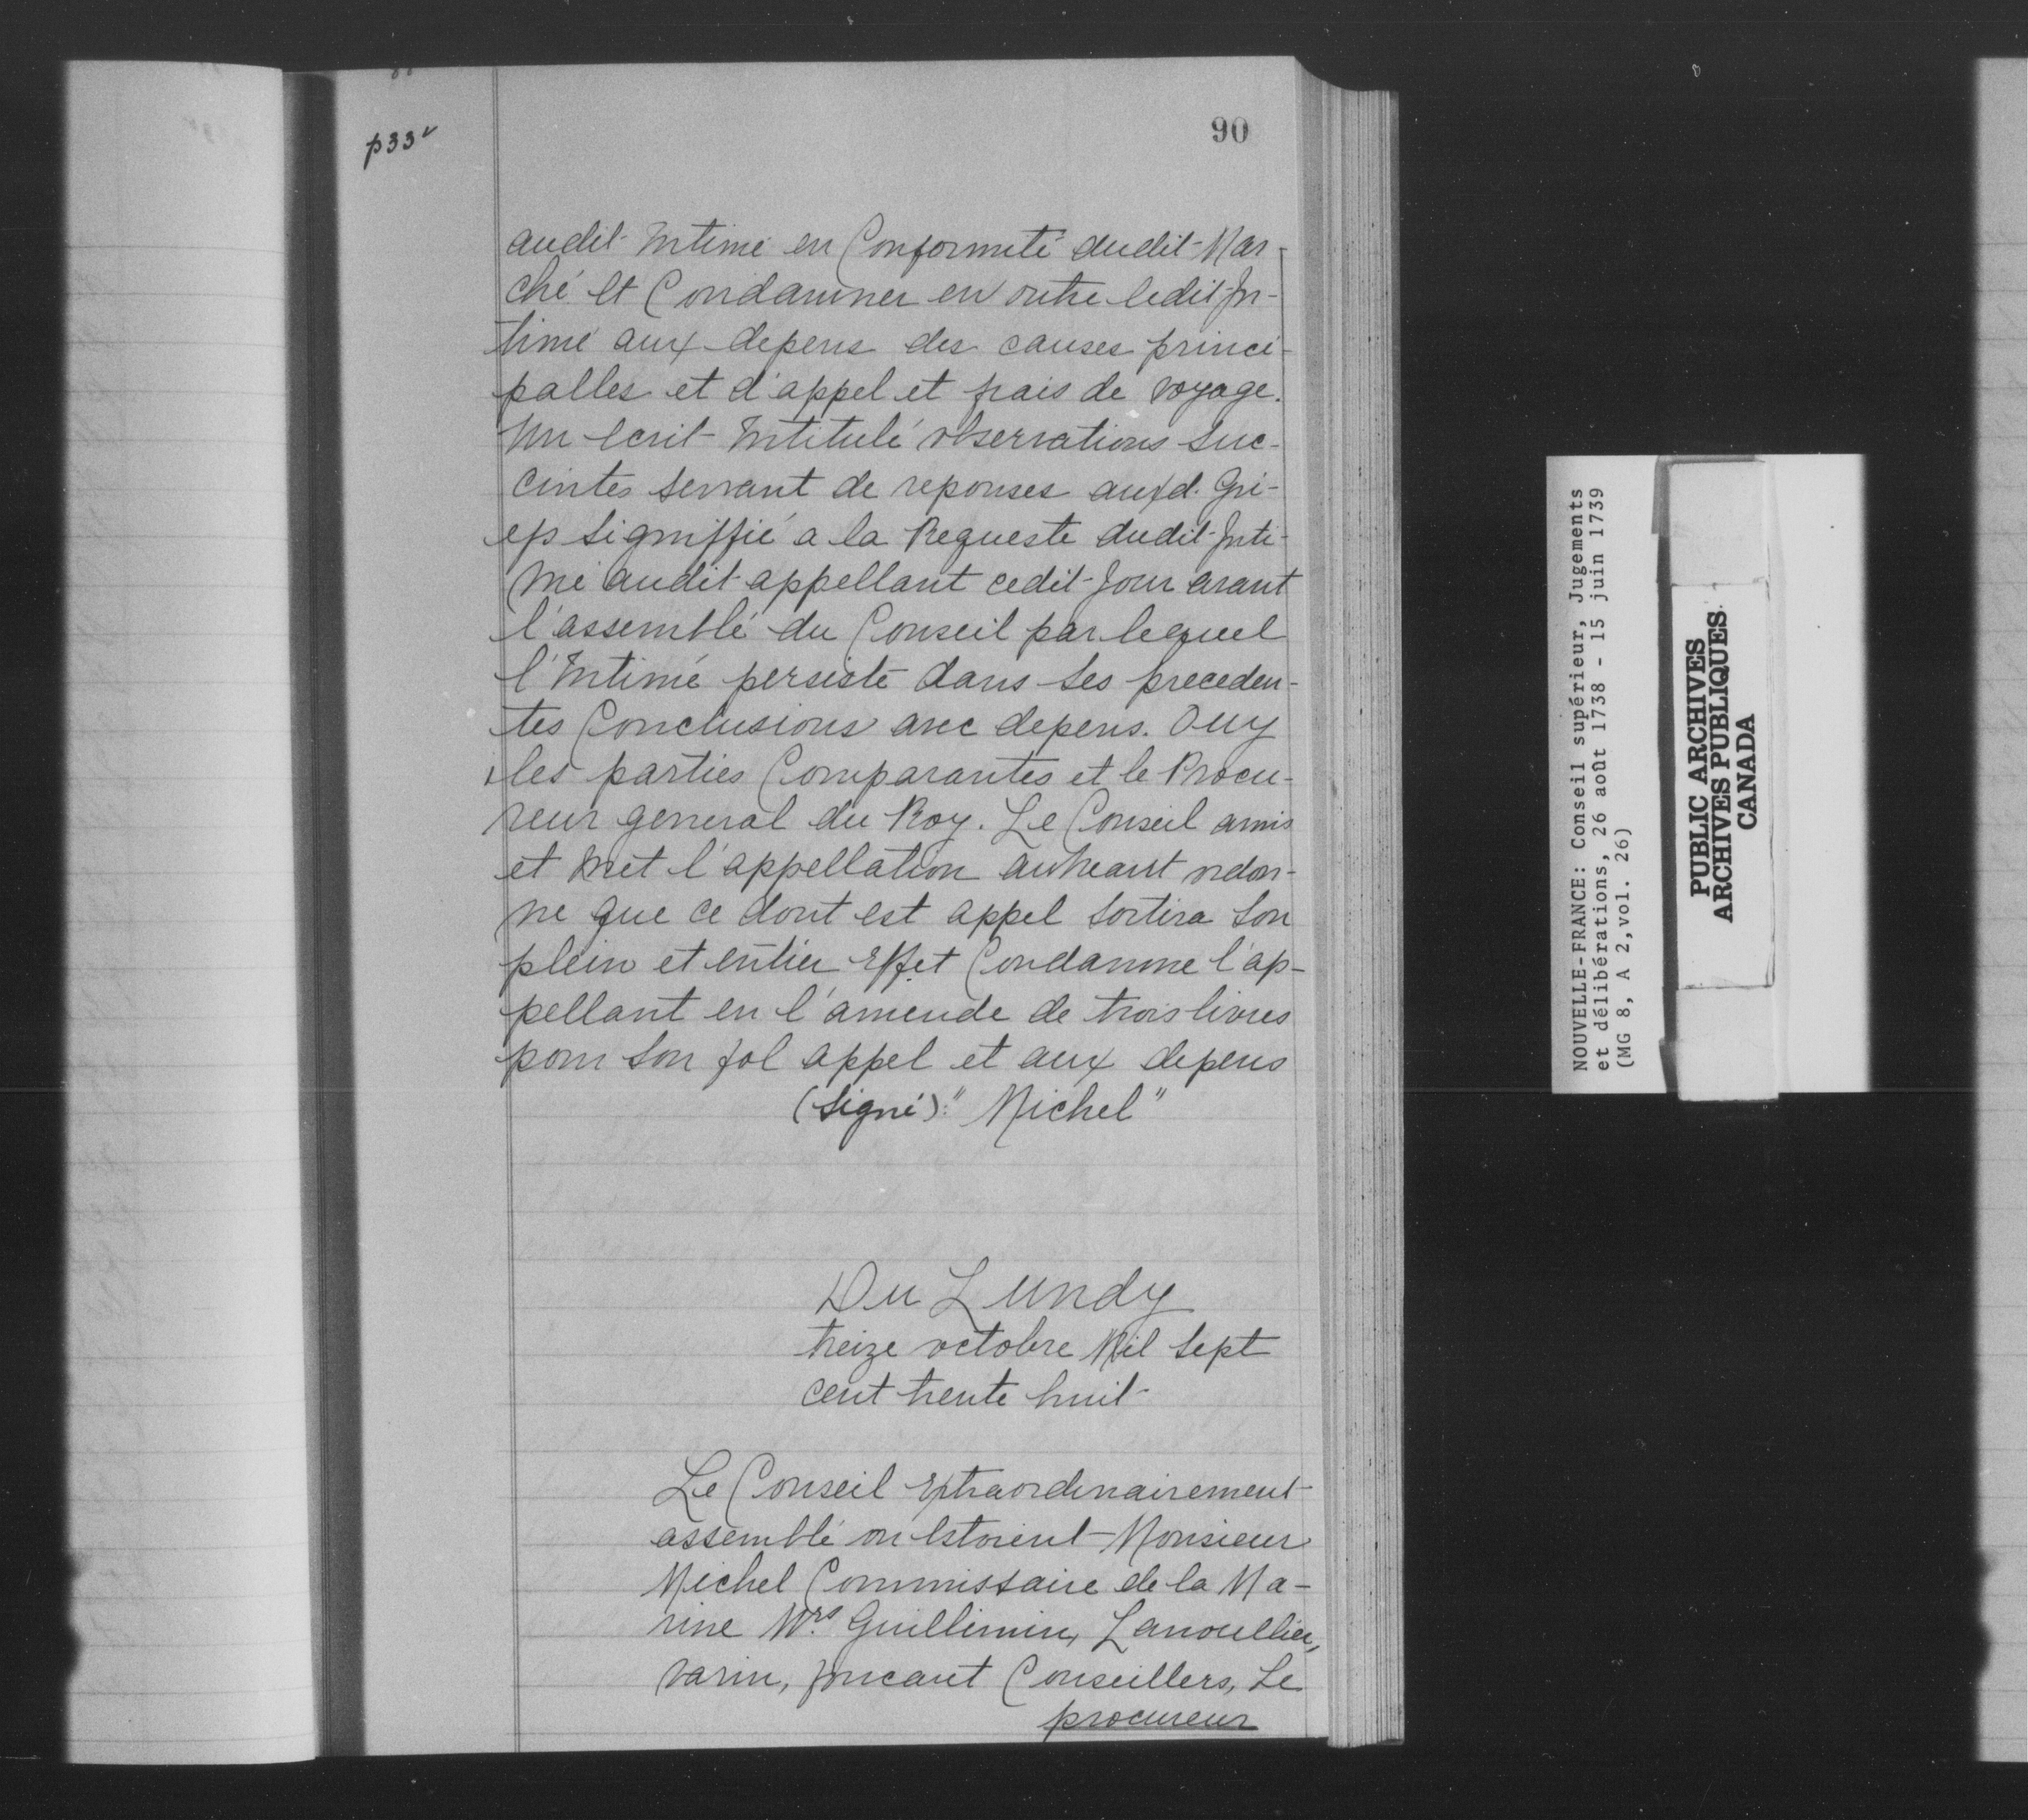 p33v
90
audit Intimé en Conformité dudit Mar-
ché et Condamner en outre ledit In-
timé aux depens des causes princi-
palles et d'appel et frais de voyage.
Un Ecrit Intitulé observations Suc-
cintes servant de reponses auxd. Gri-
efs Signiffié a la Requeste dudit Inti-
mé audit appellant cedit Jour avant
l'assemblé du Conseil par lequel
l'Intimé persiste dans ses preceden-
tes Conclusions avec depens. Ouy
les parties Comparantes et le Procu-
reur general du Roy. Le Conseil amis
et met l'appellation auneant ordon-
ne que ce dont est appel sortira son
plein et entier Effet Condamne l'ap-
pellant en l'amende de trois livres
pour son fol appel et aux depens
(Signé): "Michel"
Du Lundy
treize octobre Mil Sept
cent trente huit
Le Conseil Extraordinairement
assemblé ou Estoient Monsieur
Michel Commissaire de la Ma-
rine Mrs. Guillimin, Lanoullier,
Varin, foucaut Conseillers, Le
procureur
NOUVELLE-FRANCE: Conseil supérieur, Jugements
et délibérations, 26 août 1738 - 15 juin 1739
(MG 8, A 2,vol. 26)
PUBLIC ARCHIVES
ARCHIVES PUBLIQUES
CANADA